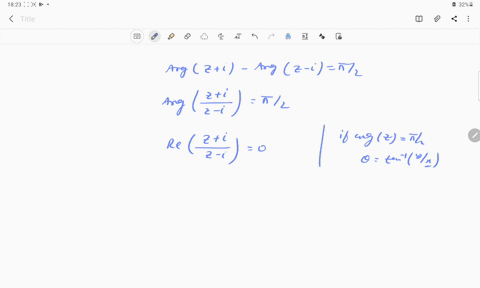 18:23
32%
Title
Arg (z+i) - Arg (z-i) = π/2
Arg ((z+i)/(z-i)) = π/2
Re ((z+i)/(z-i)) = 0
if arg(z) = π/2
θ = tan⁻¹(y/x)